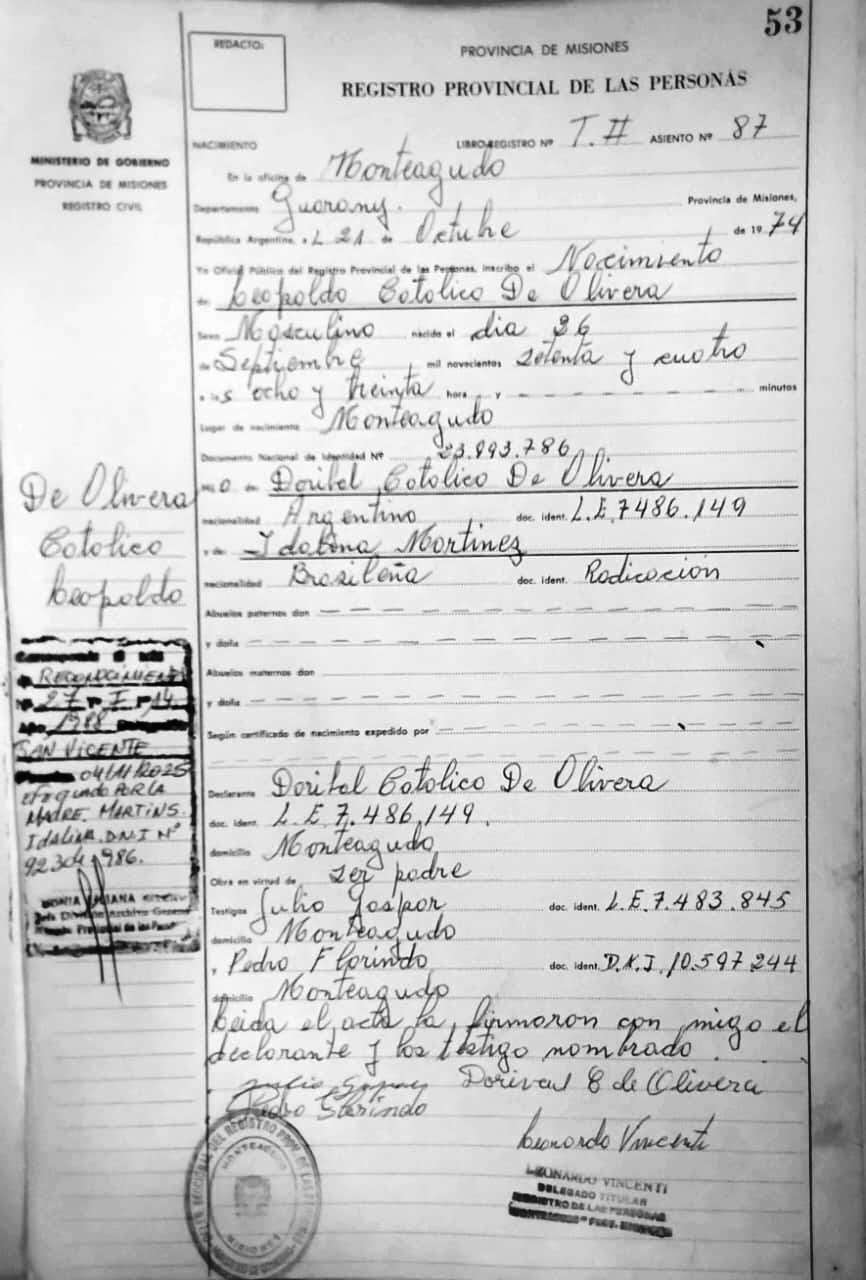 53
REDACTO:
PROVINCIA DE MISIONES
REGISTRO PROVINCIAL DE LAS PERSONAS
NACIMIENTO LIBRO-REGISTRO Nº T. II ASIENTO Nº 87
MINISTERIO DE GOBIERNO
PROVINCIA DE MISIONES
REGISTRO CIVIL
En la oficina de Monteagudo
Departamento Guarany. Provincia de Misiones,
República Argentina, a L 21 de Octubre de 1974
Yo Oficial Público del Registro Provincial de las Personas, inscribo el Nacimiento
de Leopoldo Catolico De Olivera
Sexo Masculino nacido el dia 26
de Septiembre mil novecientos setenta y cuatro
a las ocho y treinta hora y minutos
Lugar de nacimiento Monteagudo
Documento Nacional de Identidad Nº 23.993.786
Hijo de Doribal Catolico De Olivera
nacionalidad Argentino doc. ident. L.E. 7486.149
y de Idalina Martinez
nacionalidad Brasileña doc. ident. Radicación
Abuelos paternos don
y doña
Abuelos maternos don
y doña
Según certificado de nacimiento expedido por
De Olivera
Catolico
Leopoldo
RECONOCIMIENTO
Nº 27 Tº I Fº 14
Año 1988
SAN VICENTE
04/11/2025
efectuado POR LA
MADRE. MARTINS.
Idalina. D.N.I Nº
Declarante Doribal Catolico De Olivera
doc. ident. L.E. 7.486,149.
domicilio Monteagudo
Obra en virtud de ser padre
Testigos Julio Gaspar doc. ident. L.E. 7.483.845
domicilio Monteagudo
y Pedro Florindo doc. ident. D.N.I. 10.597 244
domicilio Monteagudo
Leida el acta la firmaron con migo el
declarante y los testigo nombrado.
Dorival C de Olivera
Pedro Florindo
Leonardo Vincenti
LEONARDO VINCENTI
DELEGADO TITULAR
REGISTRO DE LAS PERSONAS
MONTEAGUDO
MISIONES